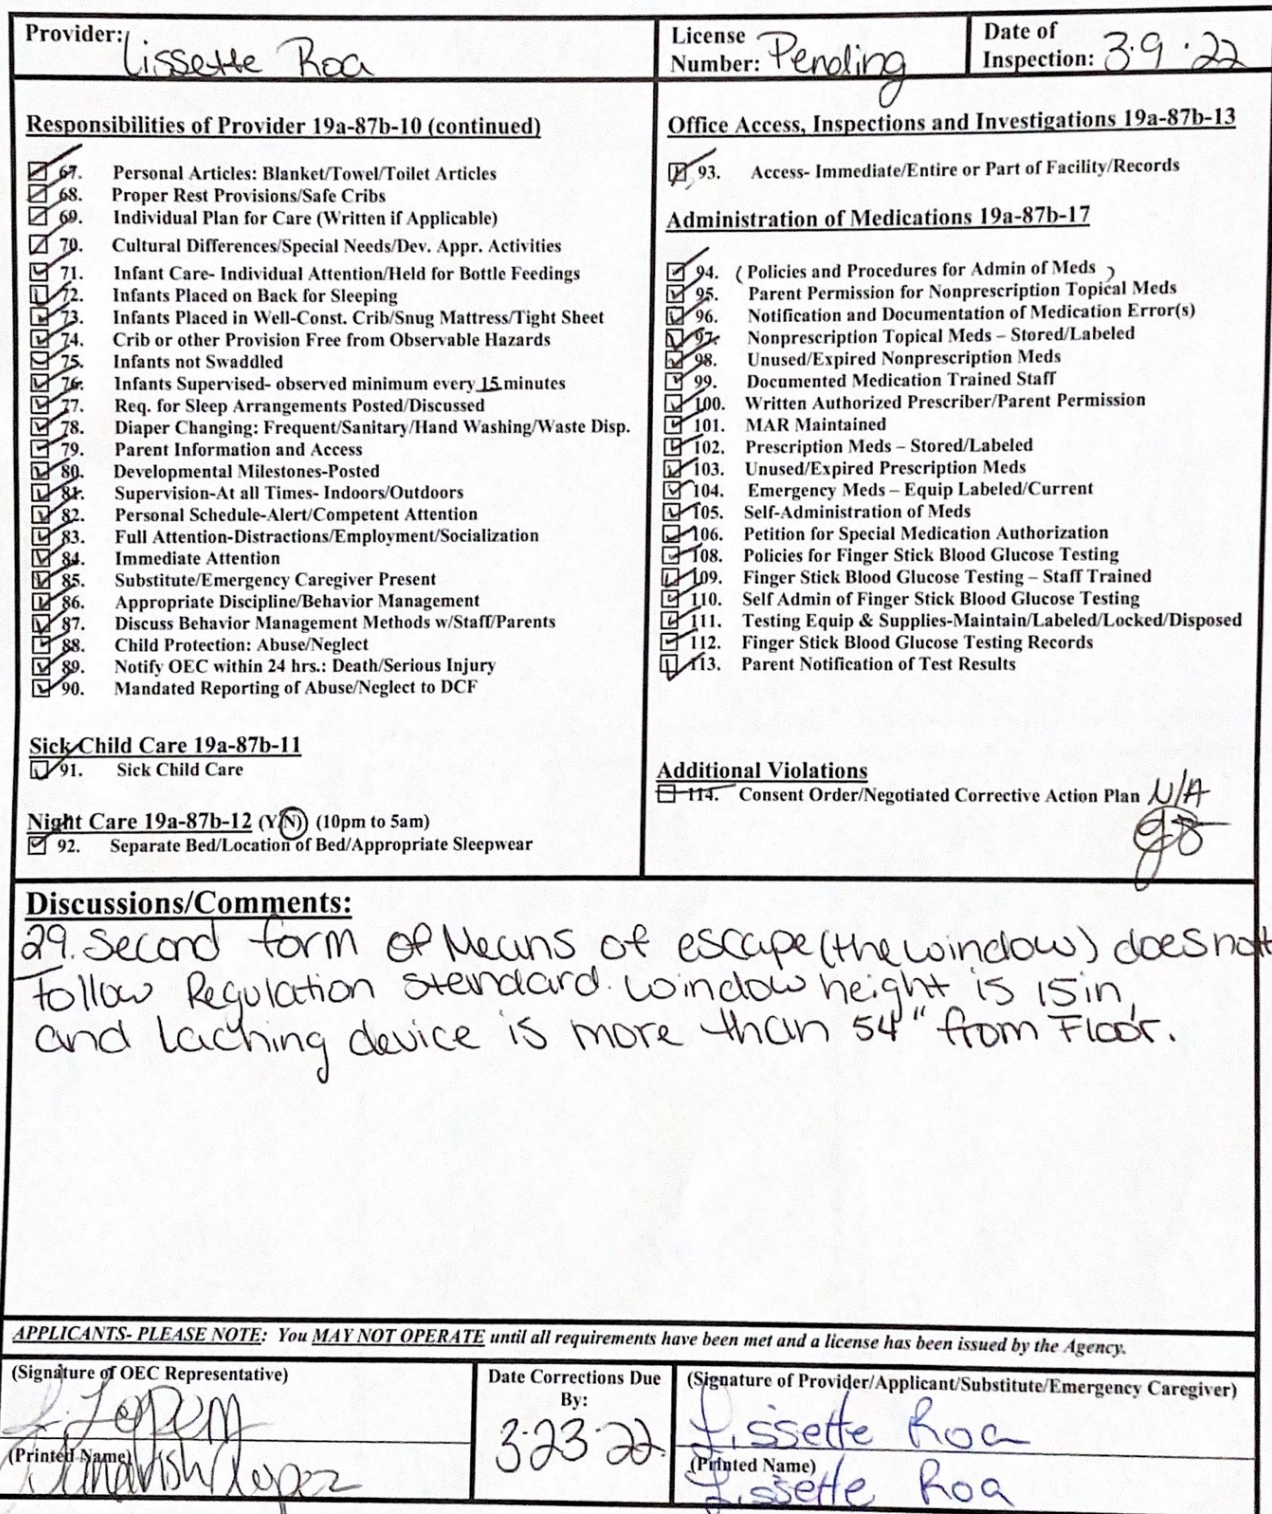 Provider: Lissette Roa
License Number: Pending
Date of Inspection: 3·9·22
Responsibilities of Provider 19a-87b-10 (continued)
67. Personal Articles: Blanket/Towel/Toilet Articles
68. Proper Rest Provisions/Safe Cribs
69. Individual Plan for Care (Written if Applicable)
70. Cultural Differences/Special Needs/Dev. Appr. Activities
71. Infant Care- Individual Attention/Held for Bottle Feedings
72. Infants Placed on Back for Sleeping
73. Infants Placed in Well-Const. Crib/Snug Mattress/Tight Sheet
74. Crib or other Provision Free from Observable Hazards
75. Infants not Swaddled
76. Infants Supervised- observed minimum every 15 minutes
77. Req. for Sleep Arrangements Posted/Discussed
78. Diaper Changing: Frequent/Sanitary/Hand Washing/Waste Disp.
79. Parent Information and Access
80. Developmental Milestones-Posted
81. Supervision-At all Times- Indoors/Outdoors
82. Personal Schedule-Alert/Competent Attention
83. Full Attention-Distractions/Employment/Socialization
84. Immediate Attention
85. Substitute/Emergency Caregiver Present
86. Appropriate Discipline/Behavior Management
87. Discuss Behavior Management Methods w/Staff/Parents
88. Child Protection: Abuse/Neglect
89. Notify OEC within 24 hrs.: Death/Serious Injury
90. Mandated Reporting of Abuse/Neglect to DCF
Sick Child Care 19a-87b-11
91. Sick Child Care
Night Care 19a-87b-12 (Y/N) (10pm to 5am)
92. Separate Bed/Location of Bed/Appropriate Sleepwear
Office Access, Inspections and Investigations 19a-87b-13
93. Access- Immediate/Entire or Part of Facility/Records
Administration of Medications 19a-87b-17
94. (Policies and Procedures for Admin of Meds )
95. Parent Permission for Nonprescription Topical Meds
96. Notification and Documentation of Medication Error(s)
97. Nonprescription Topical Meds – Stored/Labeled
98. Unused/Expired Nonprescription Meds
99. Documented Medication Trained Staff
100. Written Authorized Prescriber/Parent Permission
101. MAR Maintained
102. Prescription Meds – Stored/Labeled
103. Unused/Expired Prescription Meds
104. Emergency Meds – Equip Labeled/Current
105. Self-Administration of Meds
106. Petition for Special Medication Authorization
108. Policies for Finger Stick Blood Glucose Testing
109. Finger Stick Blood Glucose Testing – Staff Trained
110. Self Admin of Finger Stick Blood Glucose Testing
111. Testing Equip & Supplies-Maintain/Labeled/Locked/Disposed
112. Finger Stick Blood Glucose Testing Records
113. Parent Notification of Test Results
Additional Violations
114. Consent Order/Negotiated Corrective Action Plan N/A
Discussions/Comments:
29. Second form of Means of escape (the window) does not
follow Regulation standard. window height is 15in,
and laching device is more than 54" from Floor.
APPLICANTS- PLEASE NOTE: You MAY NOT OPERATE until all requirements have been met and a license has been issued by the Agency.
(Signature of OEC Representative)
(Printed Name)
Date Corrections Due By:
3·23·22
(Signature of Provider/Applicant/Substitute/Emergency Caregiver)
Lissette Roa
(Printed Name)
Lissette Roa